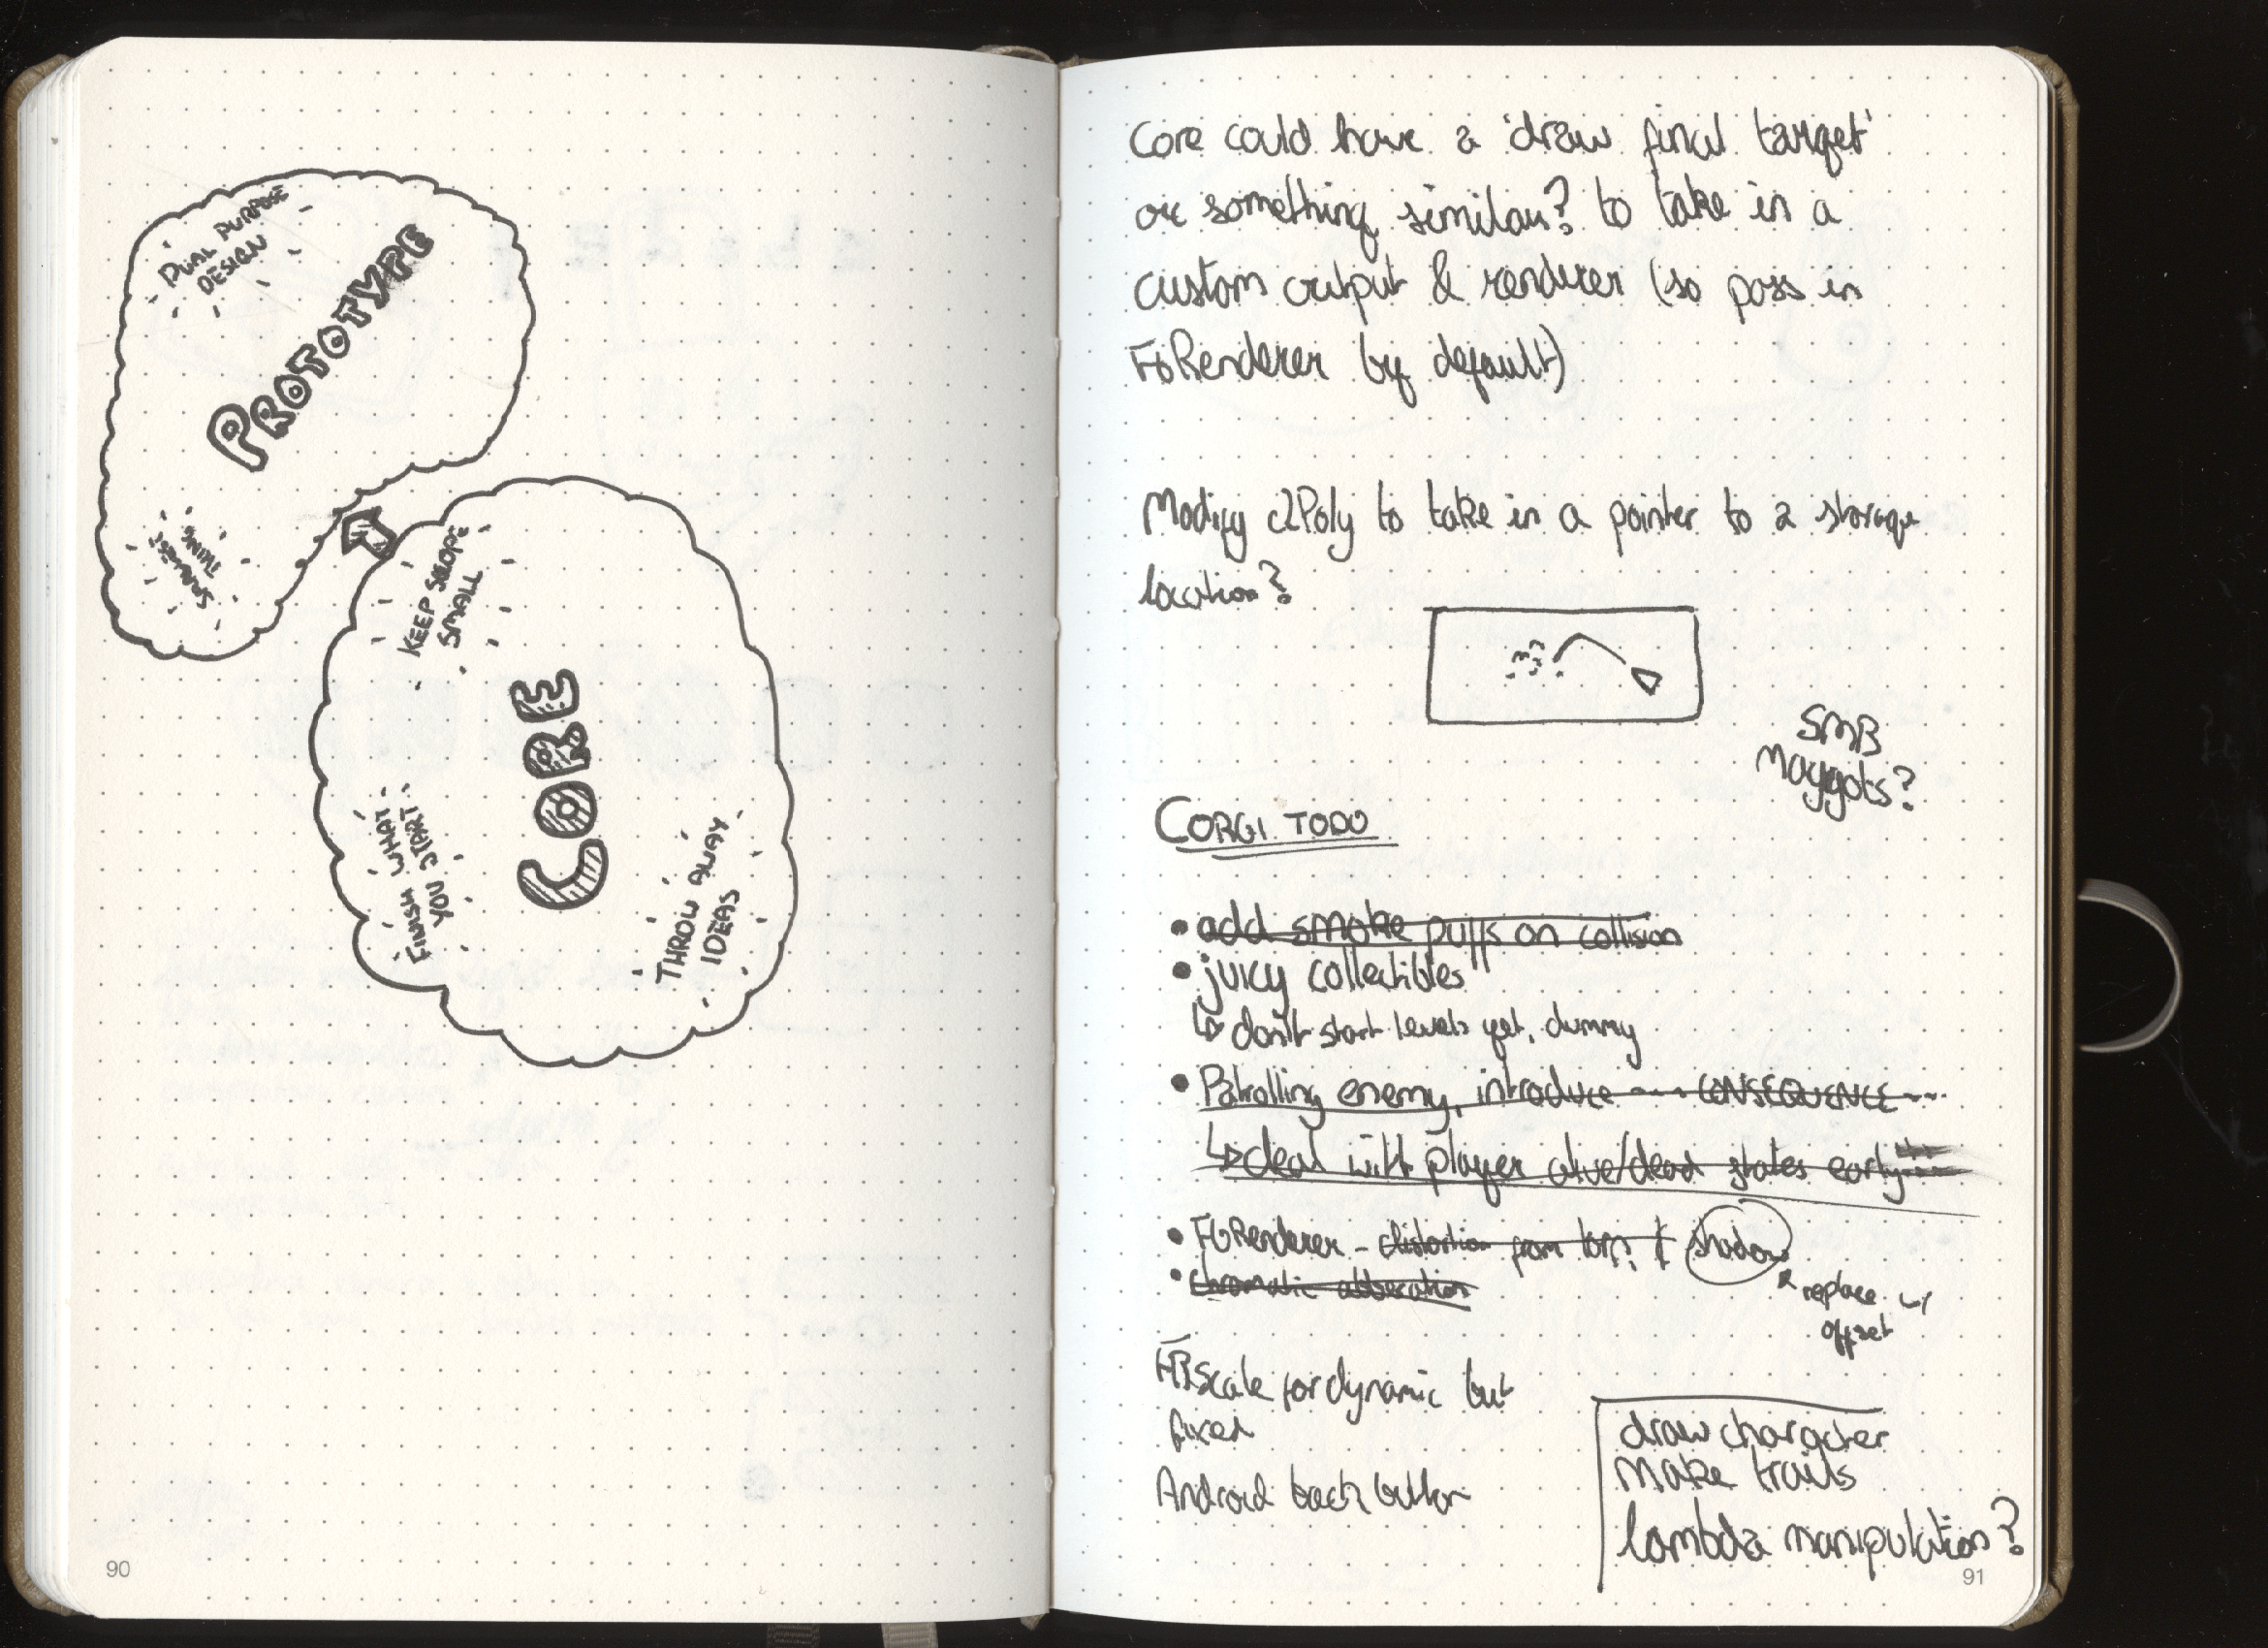 DUAL PURPOSE
DESIGN
PROTOTYPE
SMALLEST
THING
KEEP SCOPE
SMALL
CORE
FINISH WHAT
YOU START
THROW AWAY
IDEAS
90
Core could have a 'draw final target'
or something similar? to take in a
custom output & renderer (so pass in
FGRenderer by default)
Modify c2Poly to take in a pointer to a storage
location?
SMB
Maggots?
CORGI TODO
• add smoke puffs on collision
• juicy collectibles
↳ don't start levels yet, dummy
• Patrolling enemy, introduce ~~ CONSEQUENCE ~~
↳ deal with player alive/dead states early
• FGRenderer - distortion from & shadow
• chromatic abberation
replace w/
offset
scale for dynamic but
fixed
Android back button
draw character
make trails
lambda manipulation?
91